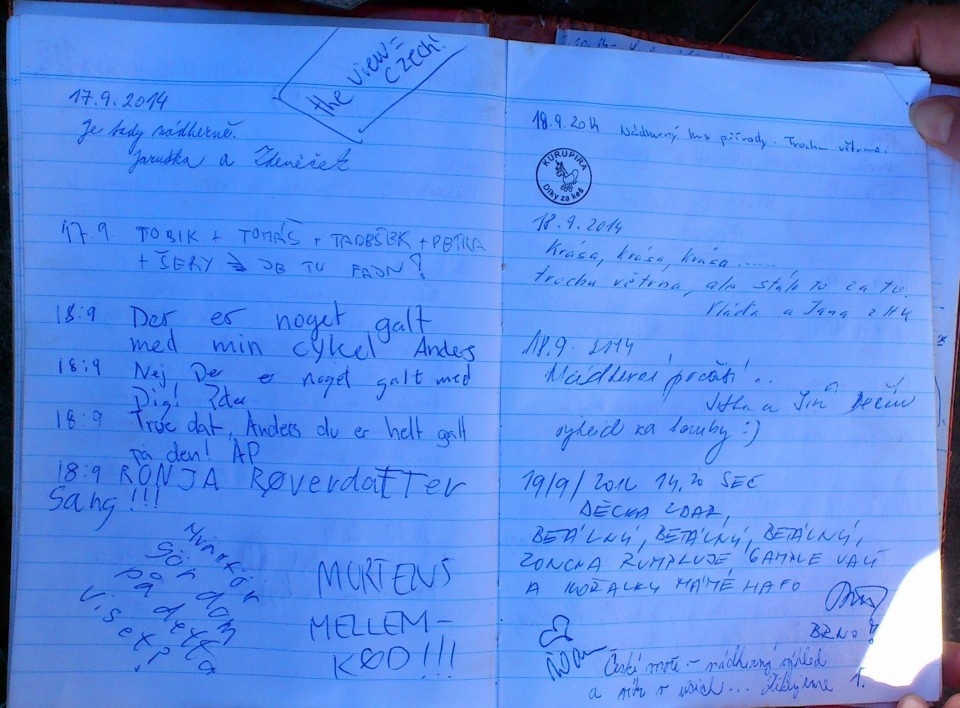 the view =
CZECH!
17.9.2014
Je tady nádherně.
Jaruška a Zdeněček
17.9. TOBIK + TOMÁŠ + + PETRA
+ ŠERY JE TU FAJN!
18:9 Der er noget galt
med min cykel Anders
18:9 Nej Der er noget galt med
Dig! Ida
18:9 True dat, Anders du er helt galt
på den! AP
18:9 RONJA RØVERDATTER
Sang!!!
Hvinför
gör dom
på detta
viset?!
MORTENS
MELLEM-
KØD!!!
18.9.2014 Nádherný kus přírody. Trochu větrno.
KURUPIRA
Díky za keš
18.9.2014
Krása, krása, krása.....
trochu větrna, ale stálo to za to.
Vláďa a Jana z HK
18.9. 2014
Nádherné počasí..
Jitka a Jiří Děčín
výhled na :)
19/9/2014 14,20 SEČ
DĚCKA ZDAR,
BETÁLNÝ, BETÁLNÝ, BETÁLNÝ,
ZONCNA RUMPLUJE, GAMBLE VALÍ
A KOŘALKY MÁME HAFO
BRNO
České moře - nádherný výhled
a vítr v uších... Děkujeme